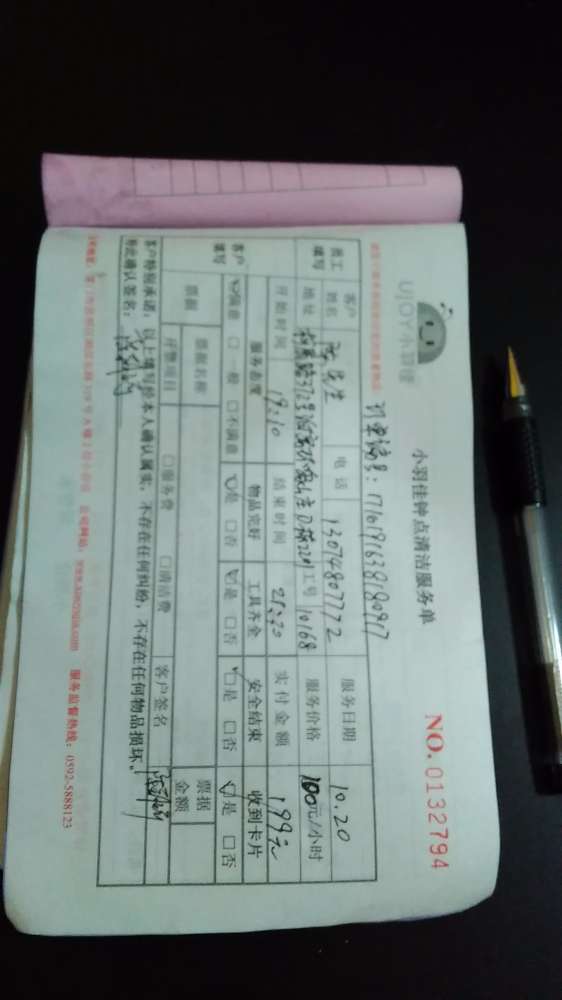 UjOY小羽佳
小羽佳钟点清洁服务单
NO.0132794
订单编号:1710191638180917
员工填写
客户姓名 陈先生 电话 13074807772 服务日期 10.20
地址 312号 D栋2201 工号 10168 服务价格 100元/小时
开始时间 19:10 结束时间 21:20 实付金额 199元
客户填写
服务态度 物品完好 工具齐全 安全结束 收到卡片
☑满意 □一般 □不满意 ☑是 □否 ☑是 □否 ☑是 □否 ☑是 □否
票据 票据名称 票据金额
开票项目 □服务费 □清洁费 客户签名
客户特别承诺:以上填写经本人确认属实,不存在任何纠纷,不存在任何物品损坏。
特此确认签名:
公司网站:www.xmxiaoyujia.com 服务监督热线:0592-5888123